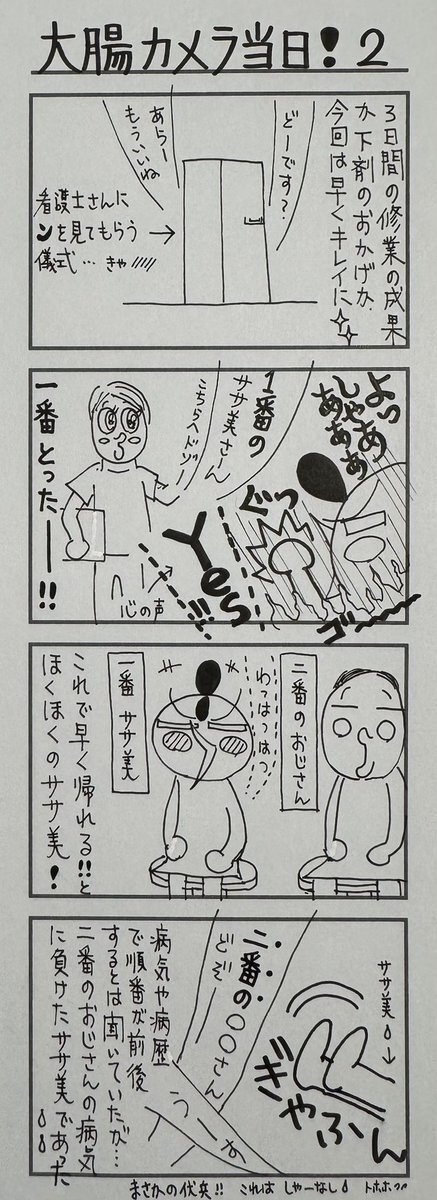 大腸カメラ当日!2
3日間の修業の成果
か下剤のおかげか、
今回は早くキレイに
どーです?
あらー
もういいね
看護士さんに
ンを見てもらう
儀式…きゃ/////
よっしゃあ
あああ
ぐっ
ゴ〜〜
1番の
ササ美さーん
こちらへドゾー
Yes!!!
心の声
一番とったー――!!
二番のおじさん
わっはっはっ
一番 ササ美
これで早く帰れる!!と
ほくほくのササ美!
ササ美
ぎゃふん
二番の〇〇さん
どぞー
うーん
病気や病歴
で順番が前後
するとは聞いていたが…
二番のおじさんの病気
に負けたササ美であった
まさかの伏兵!! これは しゃーなし トホホ